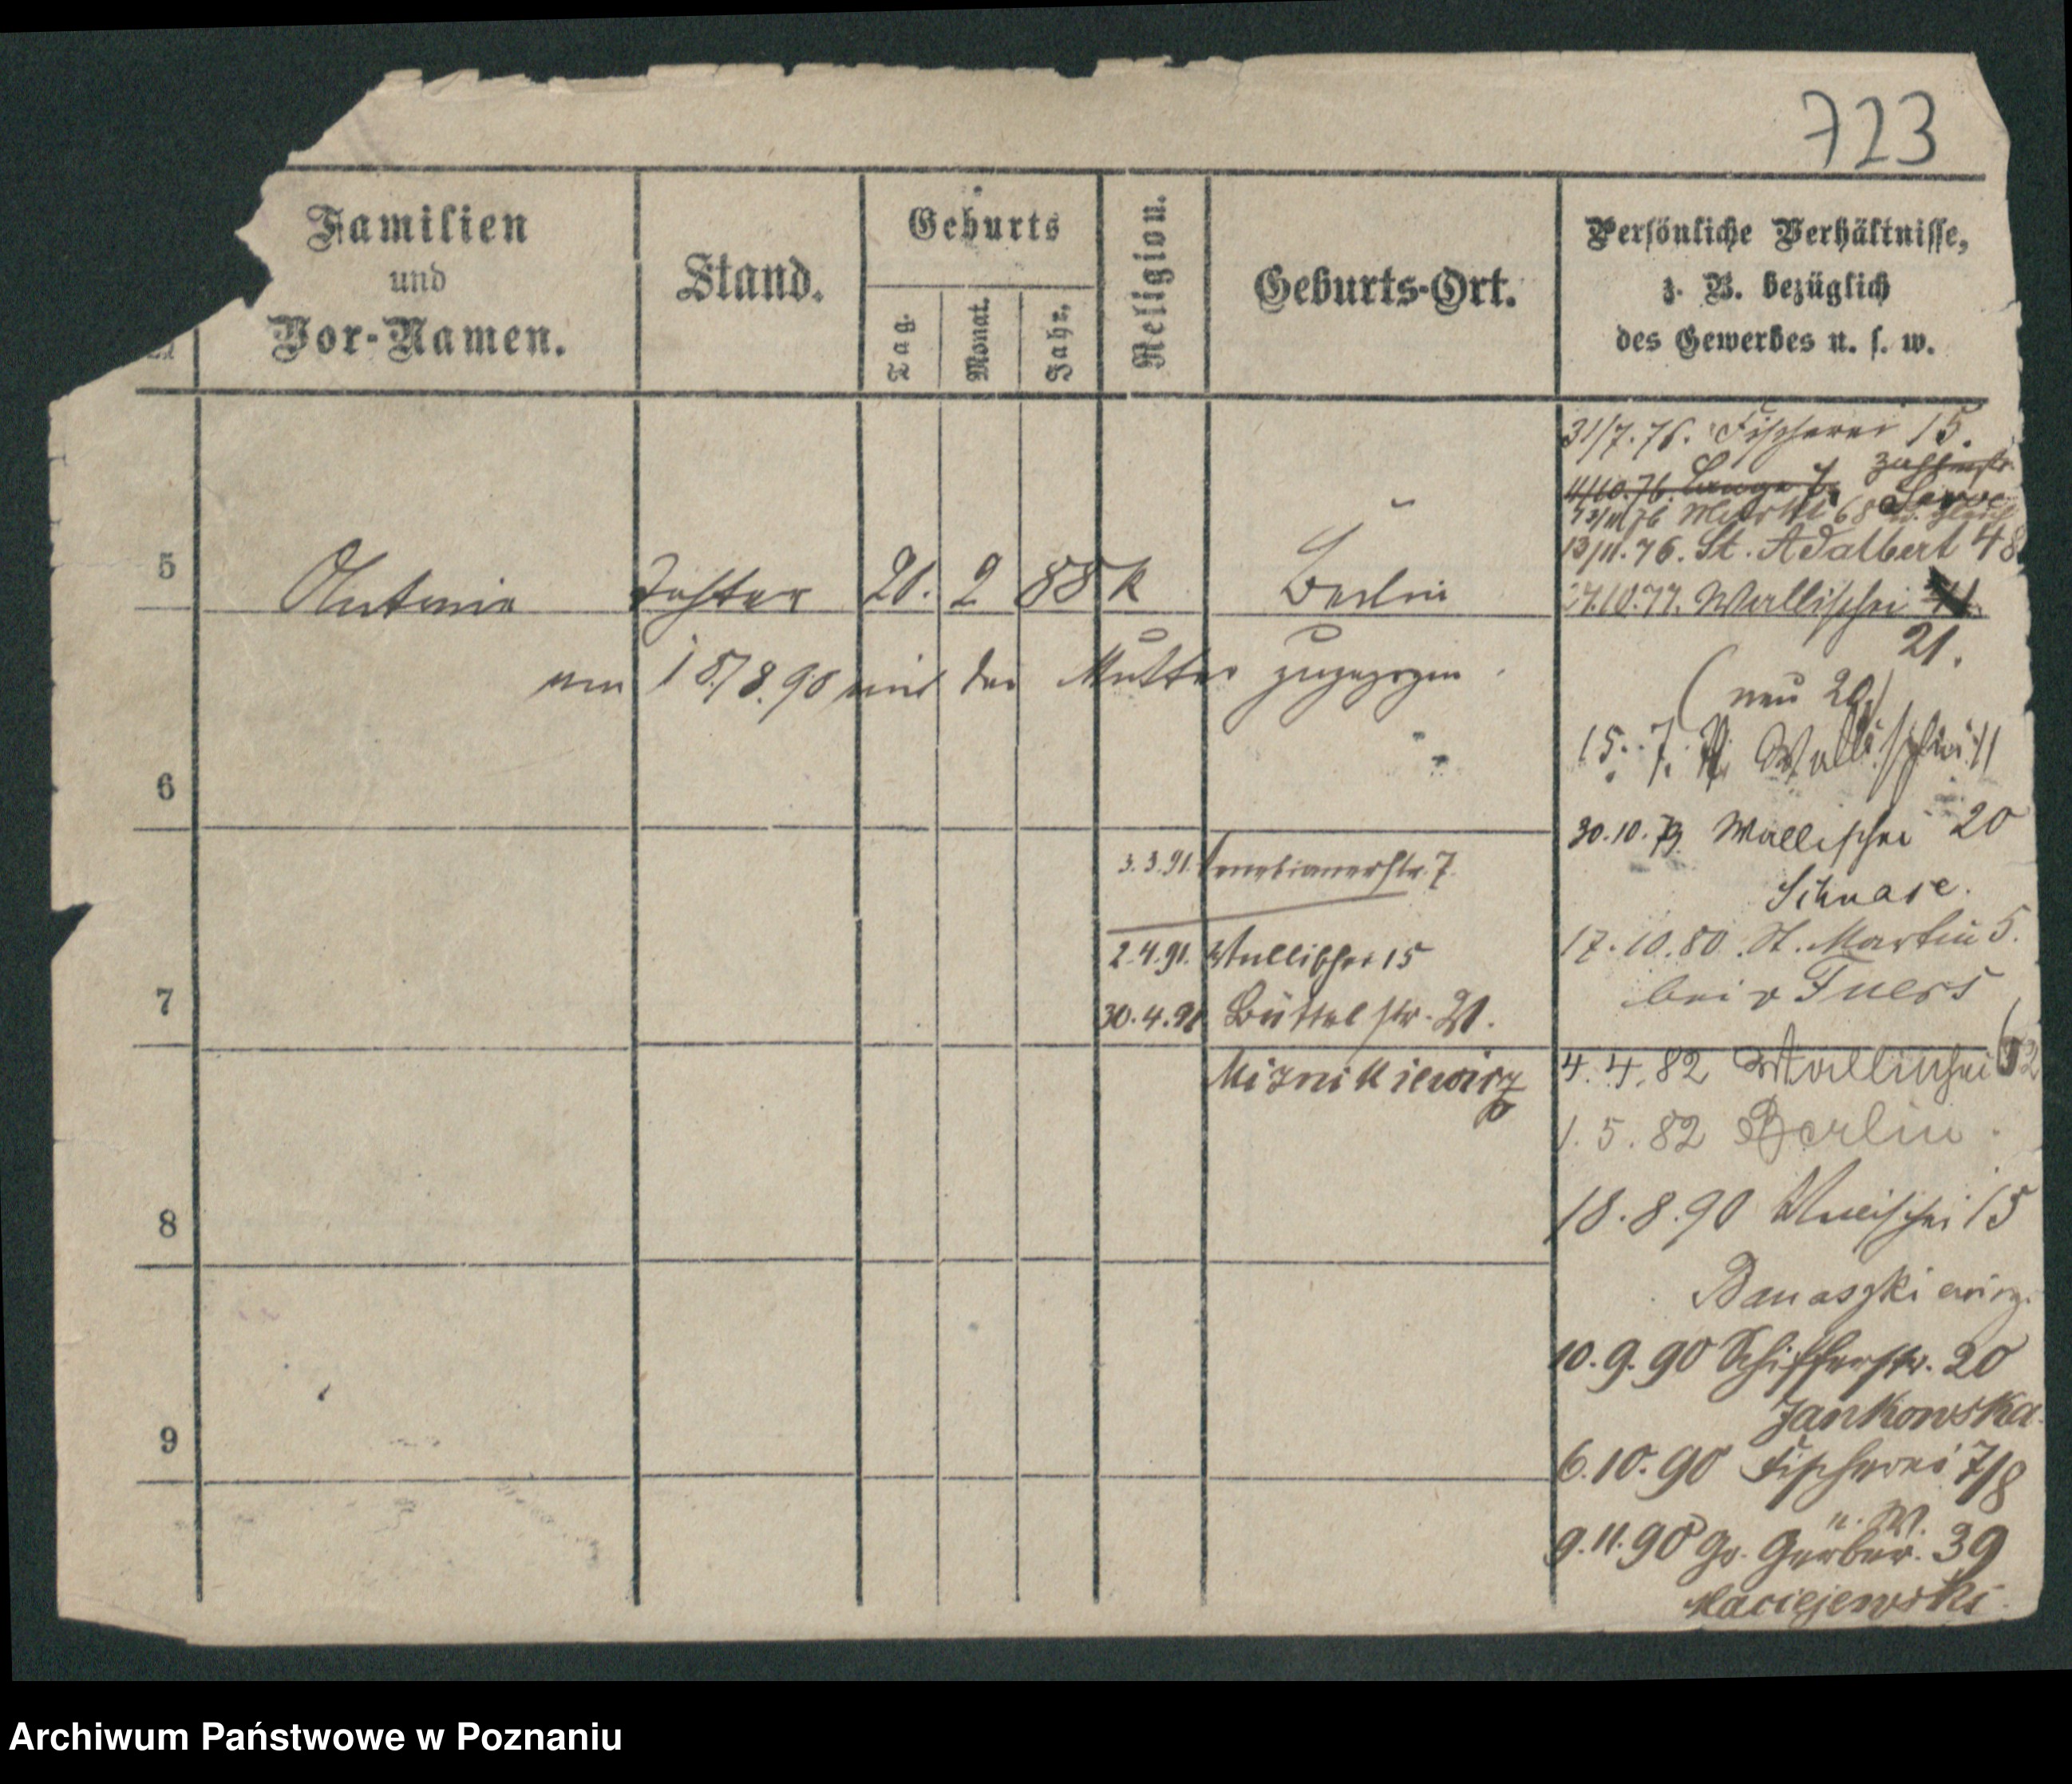 723
Familien
und
Vor-Namen.
Stand.
Geburts
Tag.
Monat.
Jahr.
Religion.
Geburts-Ort.
Persönliche Verhältnisse,
z. B. bezüglich
des Gewerbes u. s. w.
31/7.76. Fischerei 15.
11/10.76. Lange
13/11.76. St. Adalbert 48
5 Antonie Tochter 20. 2 88 k Berlin
27.10.77. Wallischei
21.
am 18/8.90 mit der Mutter zugezogen.
(neu 20)
15. 7. Wallischei 11
6
30.10.79. Wallischei 20
Schnase.
3.3.91. Venetianerstr. 7.
17.10.80. St. Martin 5.
2.4.91. Wallischei 15
bei v Fuers
7
30.4.91 Büttelstr. 21.
Miznikiewicz
4.4.82 Wallischei
1.5.82 Berlin.
8
18.8.90 Wallischei 15
Banaszkiewicz.
10.9.90 Schifferstr. 20
Jankowska.
9
6.10.90 Fischerei 7/8
b. W.
9.11.90 Gr. Gerber. 39
Maciejewski.
Archiwum Państwowe w Poznaniu